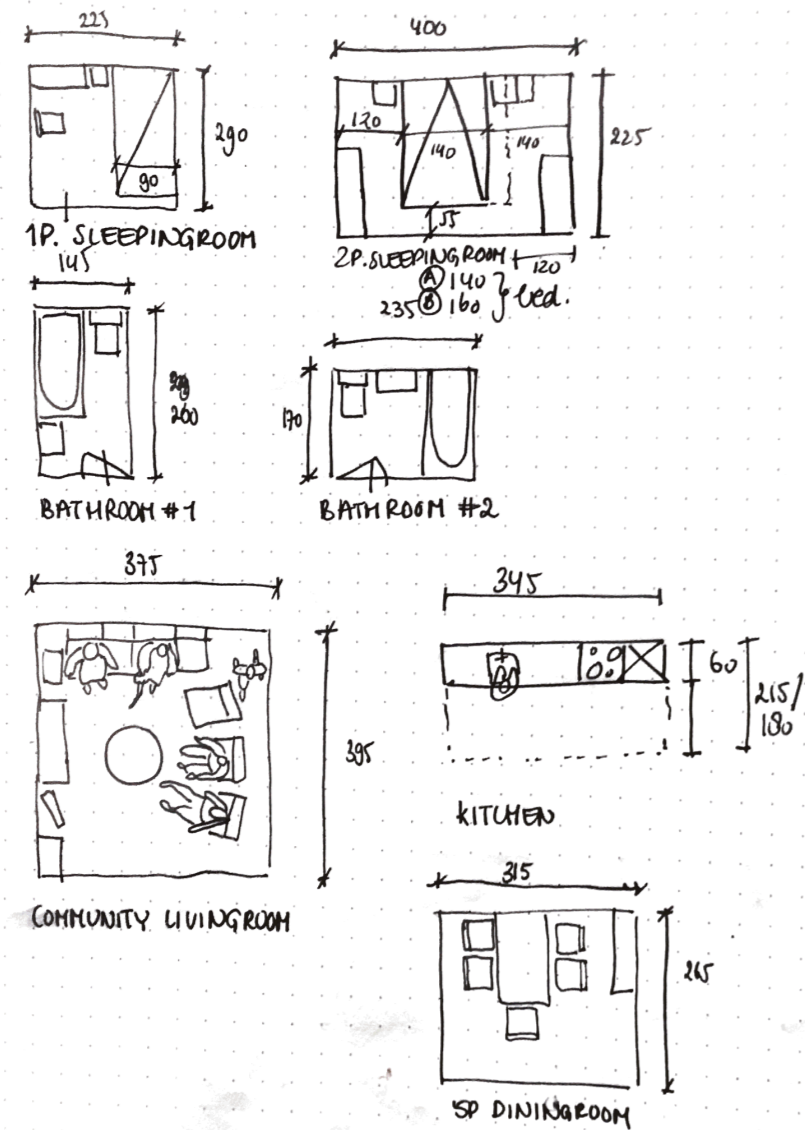 225
290
90
1P. SLEEPINGROOM
400
120
140
140
225
55
2P. SLEEPINGROOM
120
A 140
235 B 160 } bed.
145
260
BATHROOM #1
170
BATHROOM #2
375
395
COMMUNITY LIVINGROOM
345
60
215/
180
KITCHEN
315
265
5P DININGROOM